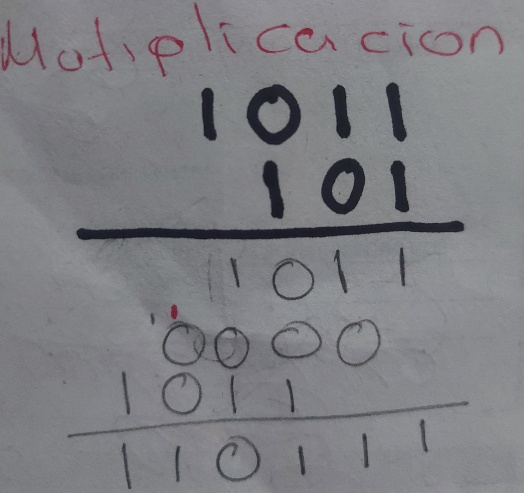 Motiplicacion
1011
101
1011
0000
1011
110111